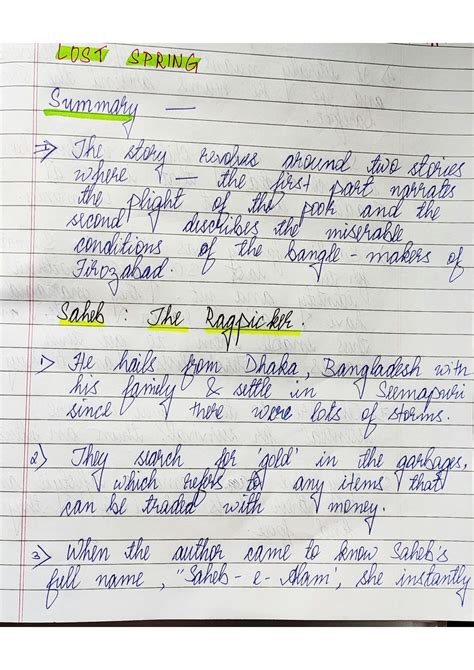 LOST SPRING
Summary —
⇒ The story revolves around two stories
where — the first part narrates
the plight of the poor and the
second describes the miserable
conditions of the bangle-makers of
Firozabad.
Saheb : The Ragpicker.
1) He hails from Dhaka, Bangladesh with
his family & settle in Seemapuri
since there were lots of storms.
2) They search for 'gold' in the garbages,
which refers to any items that
can be traded with money.
3) When the author came to know Saheb's
full name, "Saheb-e-Alam', she instantly